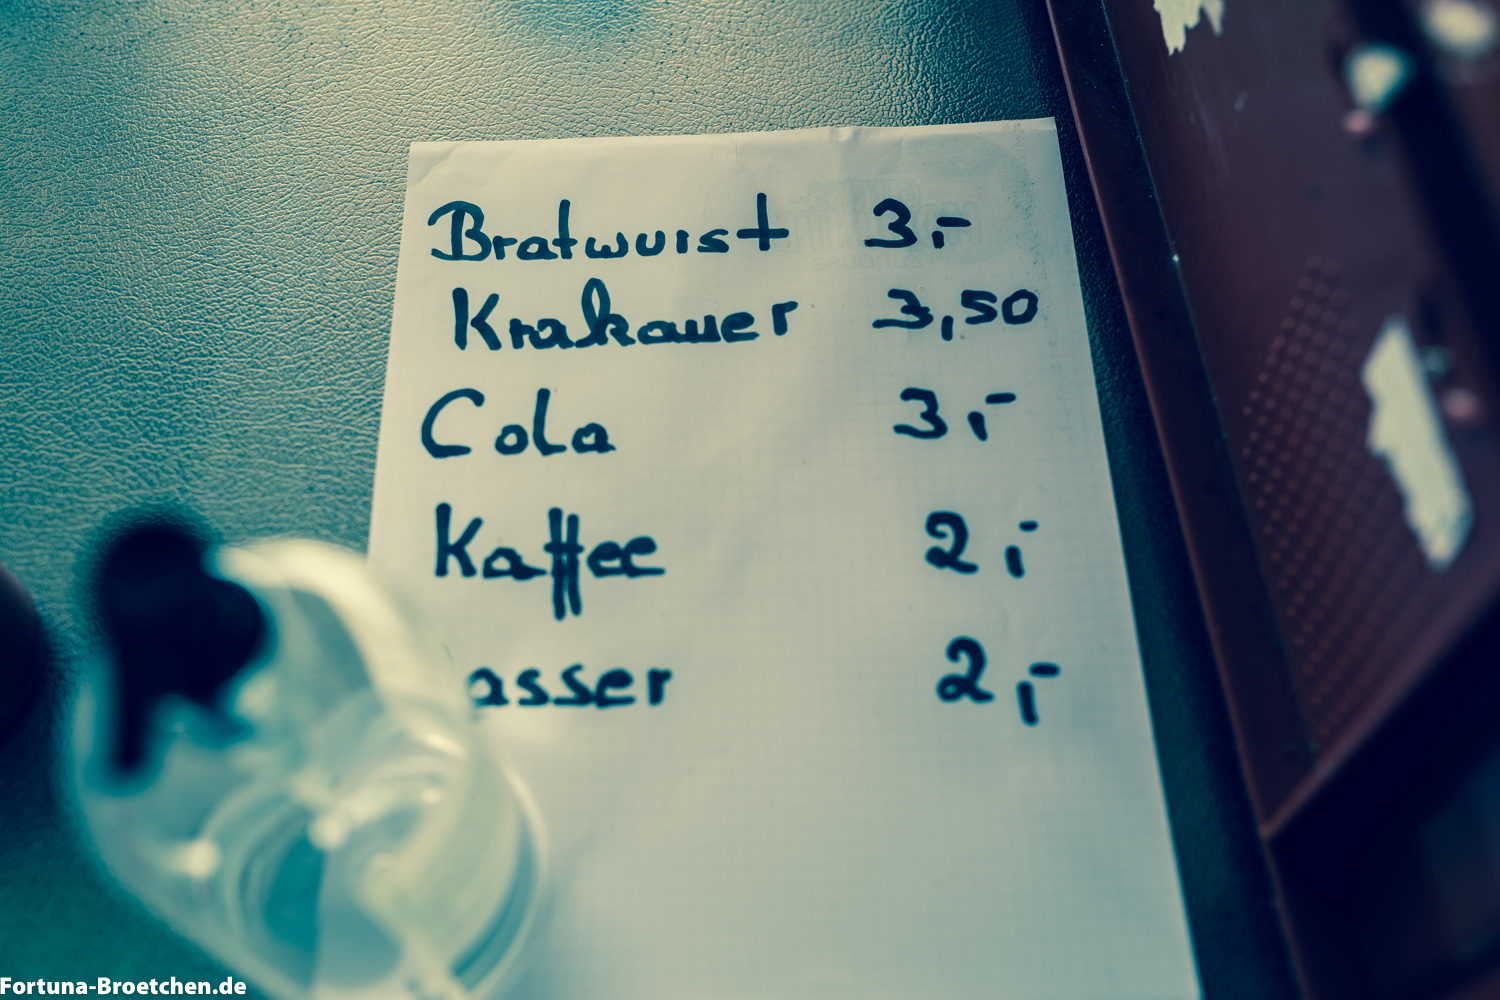 Bratwurst 3,-
Krakauer 3,50
Cola 3,-
Kaffee 2,-
asser 2,-
Fortuna-Broetchen.de